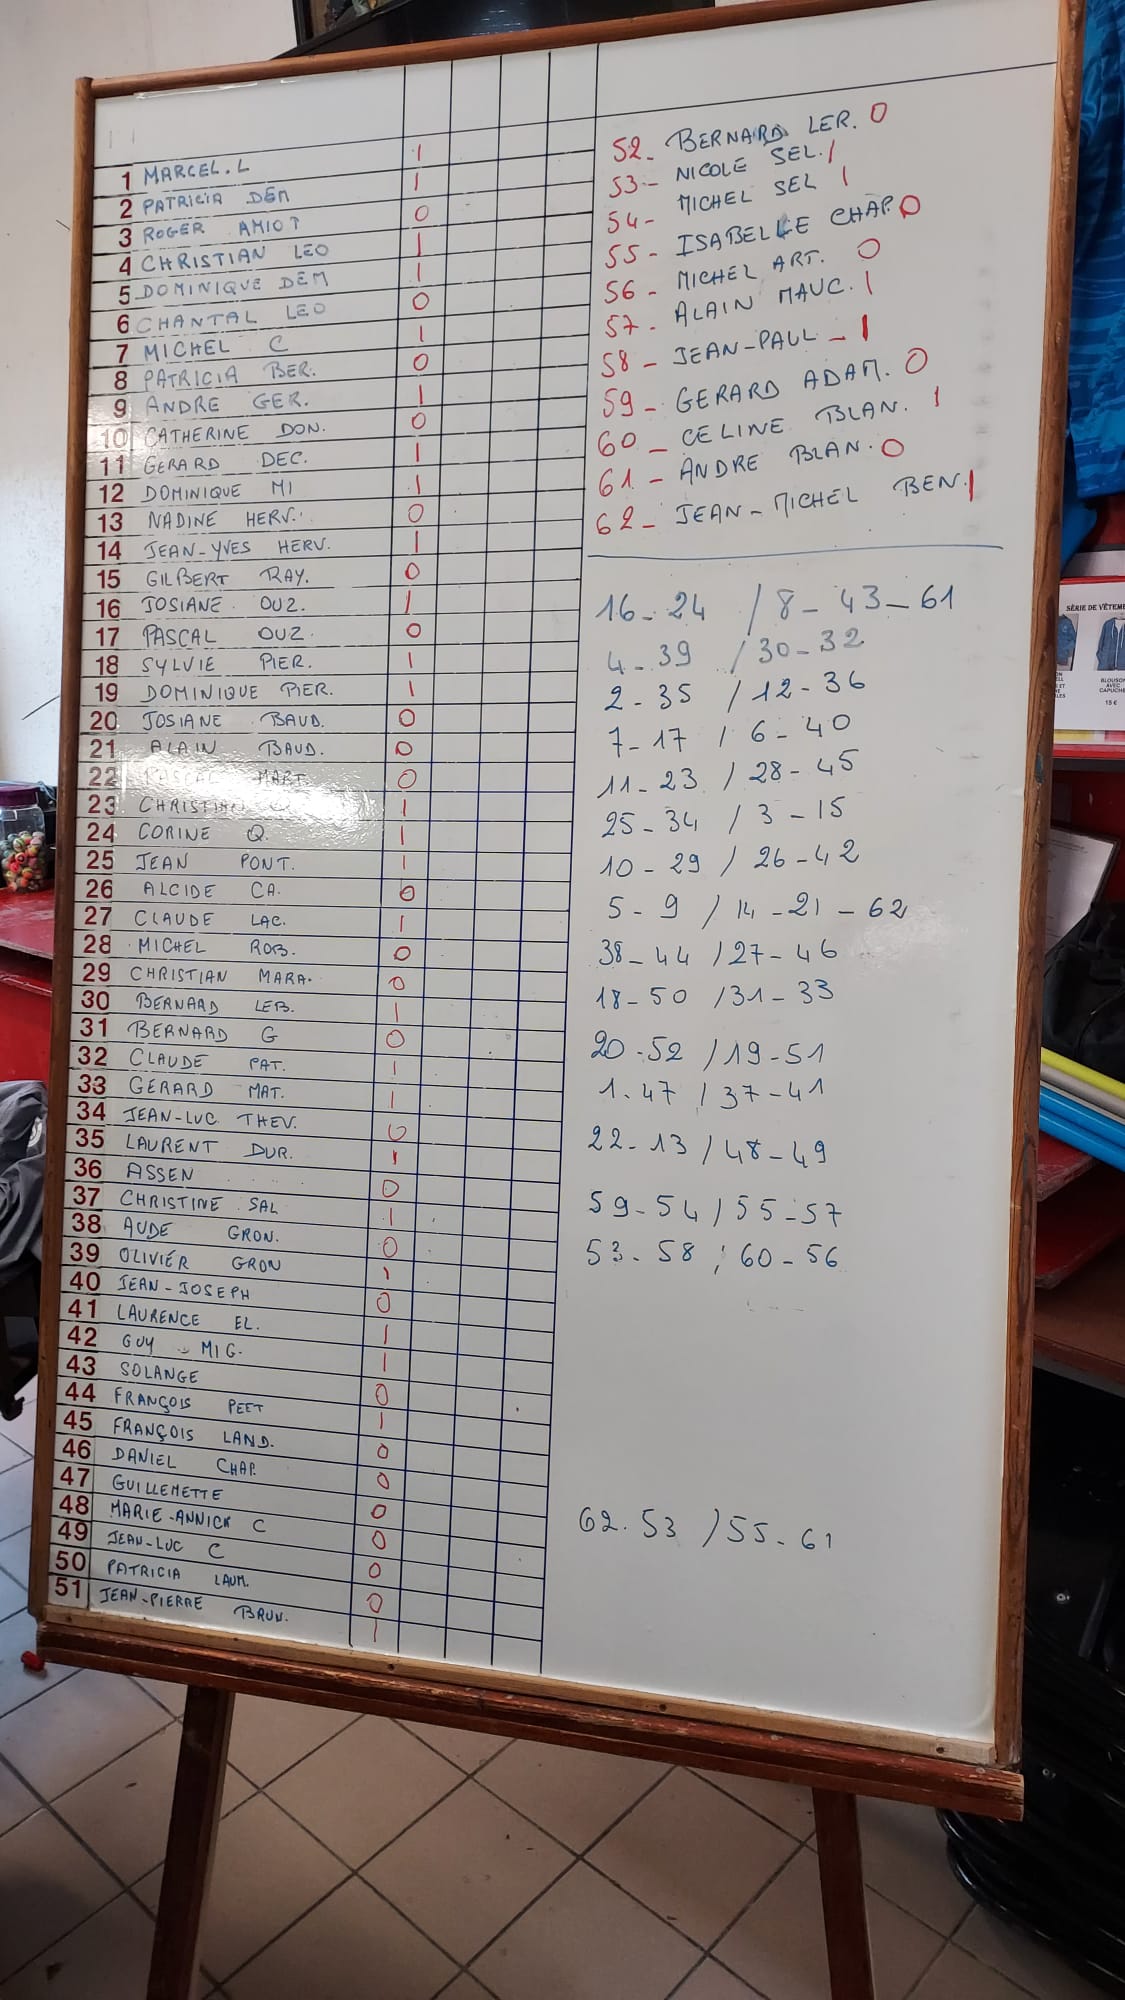 1 MARCEL.L 1
2 PATRICIA DEM 1
3 ROGER AMIOT 0
4 CHRISTIAN LEO 1
5 DOMINIQUE DEM 1
6 CHANTAL LEO 0
7 MICHEL C 1
8 PATRICIA BER. 0
9 ANDRE GER. 1
10 CATHERINE DON. 0
11 GERARD DEC. 1
12 DOMINIQUE MI 1
13 NADINE HERV. 0
14 JEAN-YVES HERV. 1
15 GILBERT RAY. 0
16 JOSIANE OUZ. 1
17 PASCAL OUZ. 0
18 SYLVIE PIER. 1
19 DOMINIQUE PIER. 1
20 JOSIANE BAUD. 0
21 ALAIN BAUD. 0
22 PASCAL MART. 0
23 CHRISTIAN Q. 1
24 CORINE Q. 1
25 JEAN PONT. 1
26 ALCIDE CA. 0
27 CLAUDE LAC. 1
28 MICHEL ROB. 0
29 CHRISTIAN MARA. 0
30 BERNARD LEB. 1
31 BERNARD G 0
32 CLAUDE PAT. 1
33 GERARD MAT. 1
34 JEAN-LUC THEV. 0
35 LAURENT DUR. 1
36 ASSEN 0
37 CHRISTINE SAL 1
38 AUDE GRON. 0
39 OLIVIÉR GRON 1
40 JEAN-JOSEPH 0
41 LAURENCE EL. 1
42 GUY MIG. 1
43 SOLANGE 0
44 FRANÇOIS PEET 1
45 FRANÇOIS LAND. 0
46 DANIEL CHAP. 0
47 GUILLEMETTE 0
48 MARIE-ANNICK C 0
49 JEAN-LUC C 0
50 PATRICIA LAUM. 0
51 JEAN-PIERRE BRUN. 1
52- BERNARD LER. 0
53- NICOLE SEL. 1
54- MICHEL SEL 1
55- ISABELLE CHAP. 0
56- MICHEL ART. 0
57- ALAIN MAUC. 1
58- JEAN-PAUL - 1
59- GERARD ADAM. 0
60- CELINE BLAN. 1
61- ANDRE BLAN. 0
62- JEAN-MICHEL BEN. 1
16-24 / 8-43-61
4-39 / 30-32
2-35 / 12-36
7-17 / 6-40
11-23 / 28-45
25-34 / 3-15
10-29 / 26-42
5-9 / 14-21-62
38-44 / 27-46
18-50 / 31-33
20-52 / 19-51
1.47 / 37-41
22-13 / 48-49
59-54 / 55-57
53-58 ; 60-56
62.53 / 55-61
SÉRIE DE VÊTEME
BLOUSON
AVEC
CAPUCHE
15 €